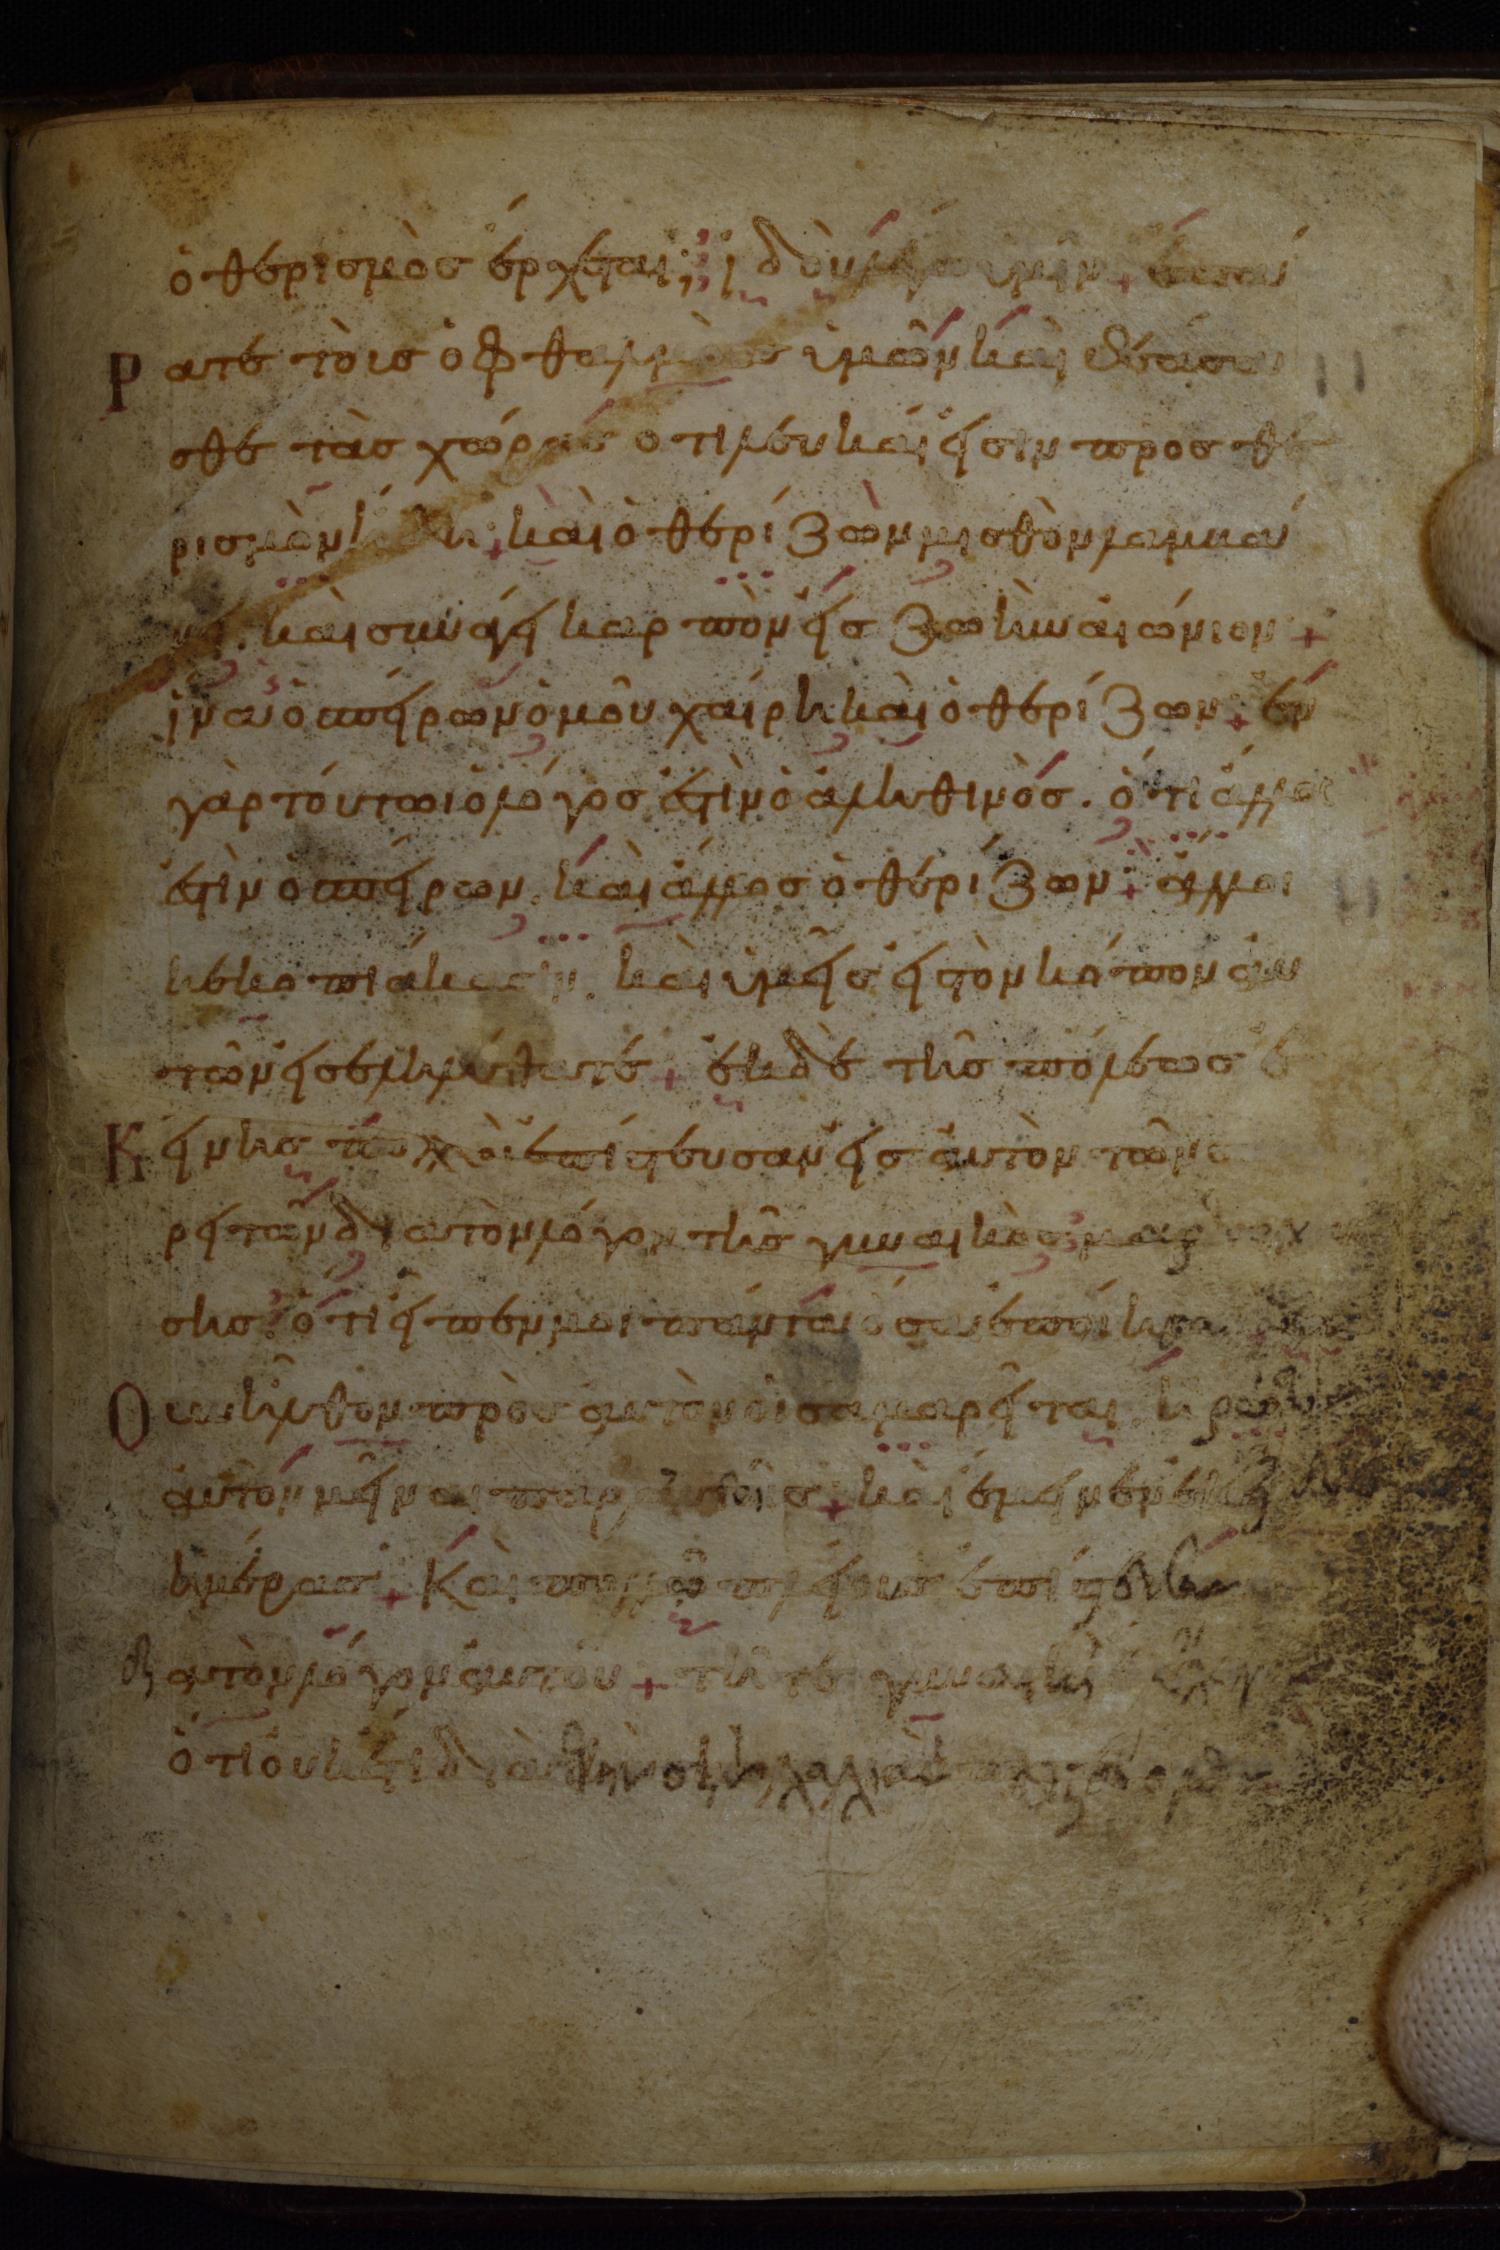 ὁ θερισμὸς ἔρχεται; ἰδοὺ λέγω ὑμῖν + ἐπάρ
ατε τοὺς ὀφθαλμοὺς ὑμῶν καὶ θεάσα
σθε τὰς χώρας ὅτι λευκαί εἰσιν προς θε
ρισμὸν ἤδη + καὶ ὁ θερίζων μισθὸν λαμβάν
ει. καὶ συνάγει καρπὸν εἰς ζωὴν αἰώνιον +
ἵνα ὁ σπείρων ὁμοῦ χαίρη καὶ ὁ θερίζων + ἐν
γὰρ τούτωι ὁ λόγος ἐστὶν ὁ ἀληθινός. ὅτι ἄλλος
ἐστὶν ὁ σπείρων. καὶ ἄλλος ὁ θερίζων + ἄλλοι
κεκοπιάκασιν. καὶ ὑμεῖς εἰς τὸν κόπον αὐ
τῶν εἰσεληλύθατε + ἐκ δὲ τῆς πόλεως ἐ
Κ είνης πολλοὶ ἐπίστευσαν εἰς αὐτὸν τῶν σα
ρειτῶν διὰ τὸν λόγον τῆς γυναικὸς μαρτυρού
σης ὅτι εἶπέν μοι πάντα ὅσα ἐποίησα
Ο υν ἦλθον πρὸς αὐτὸν οἱ σαμαρεῖται. ἠρώτων
αὐτὸν μεῖναι παρ αὐτοῖς + καὶ ἔμεινεν ἐκεῖ
ἡμέρας + Καὶ πολλῷ πλείους ἐπίστευσαν
δι ὰ τὸν λόγον αὐτοῦ + τῆ τε γυναικὶ ἔλεγον
ὅτι οὐκέτι διὰ τὴν σὴν λαλιὰν πιστεύομεν